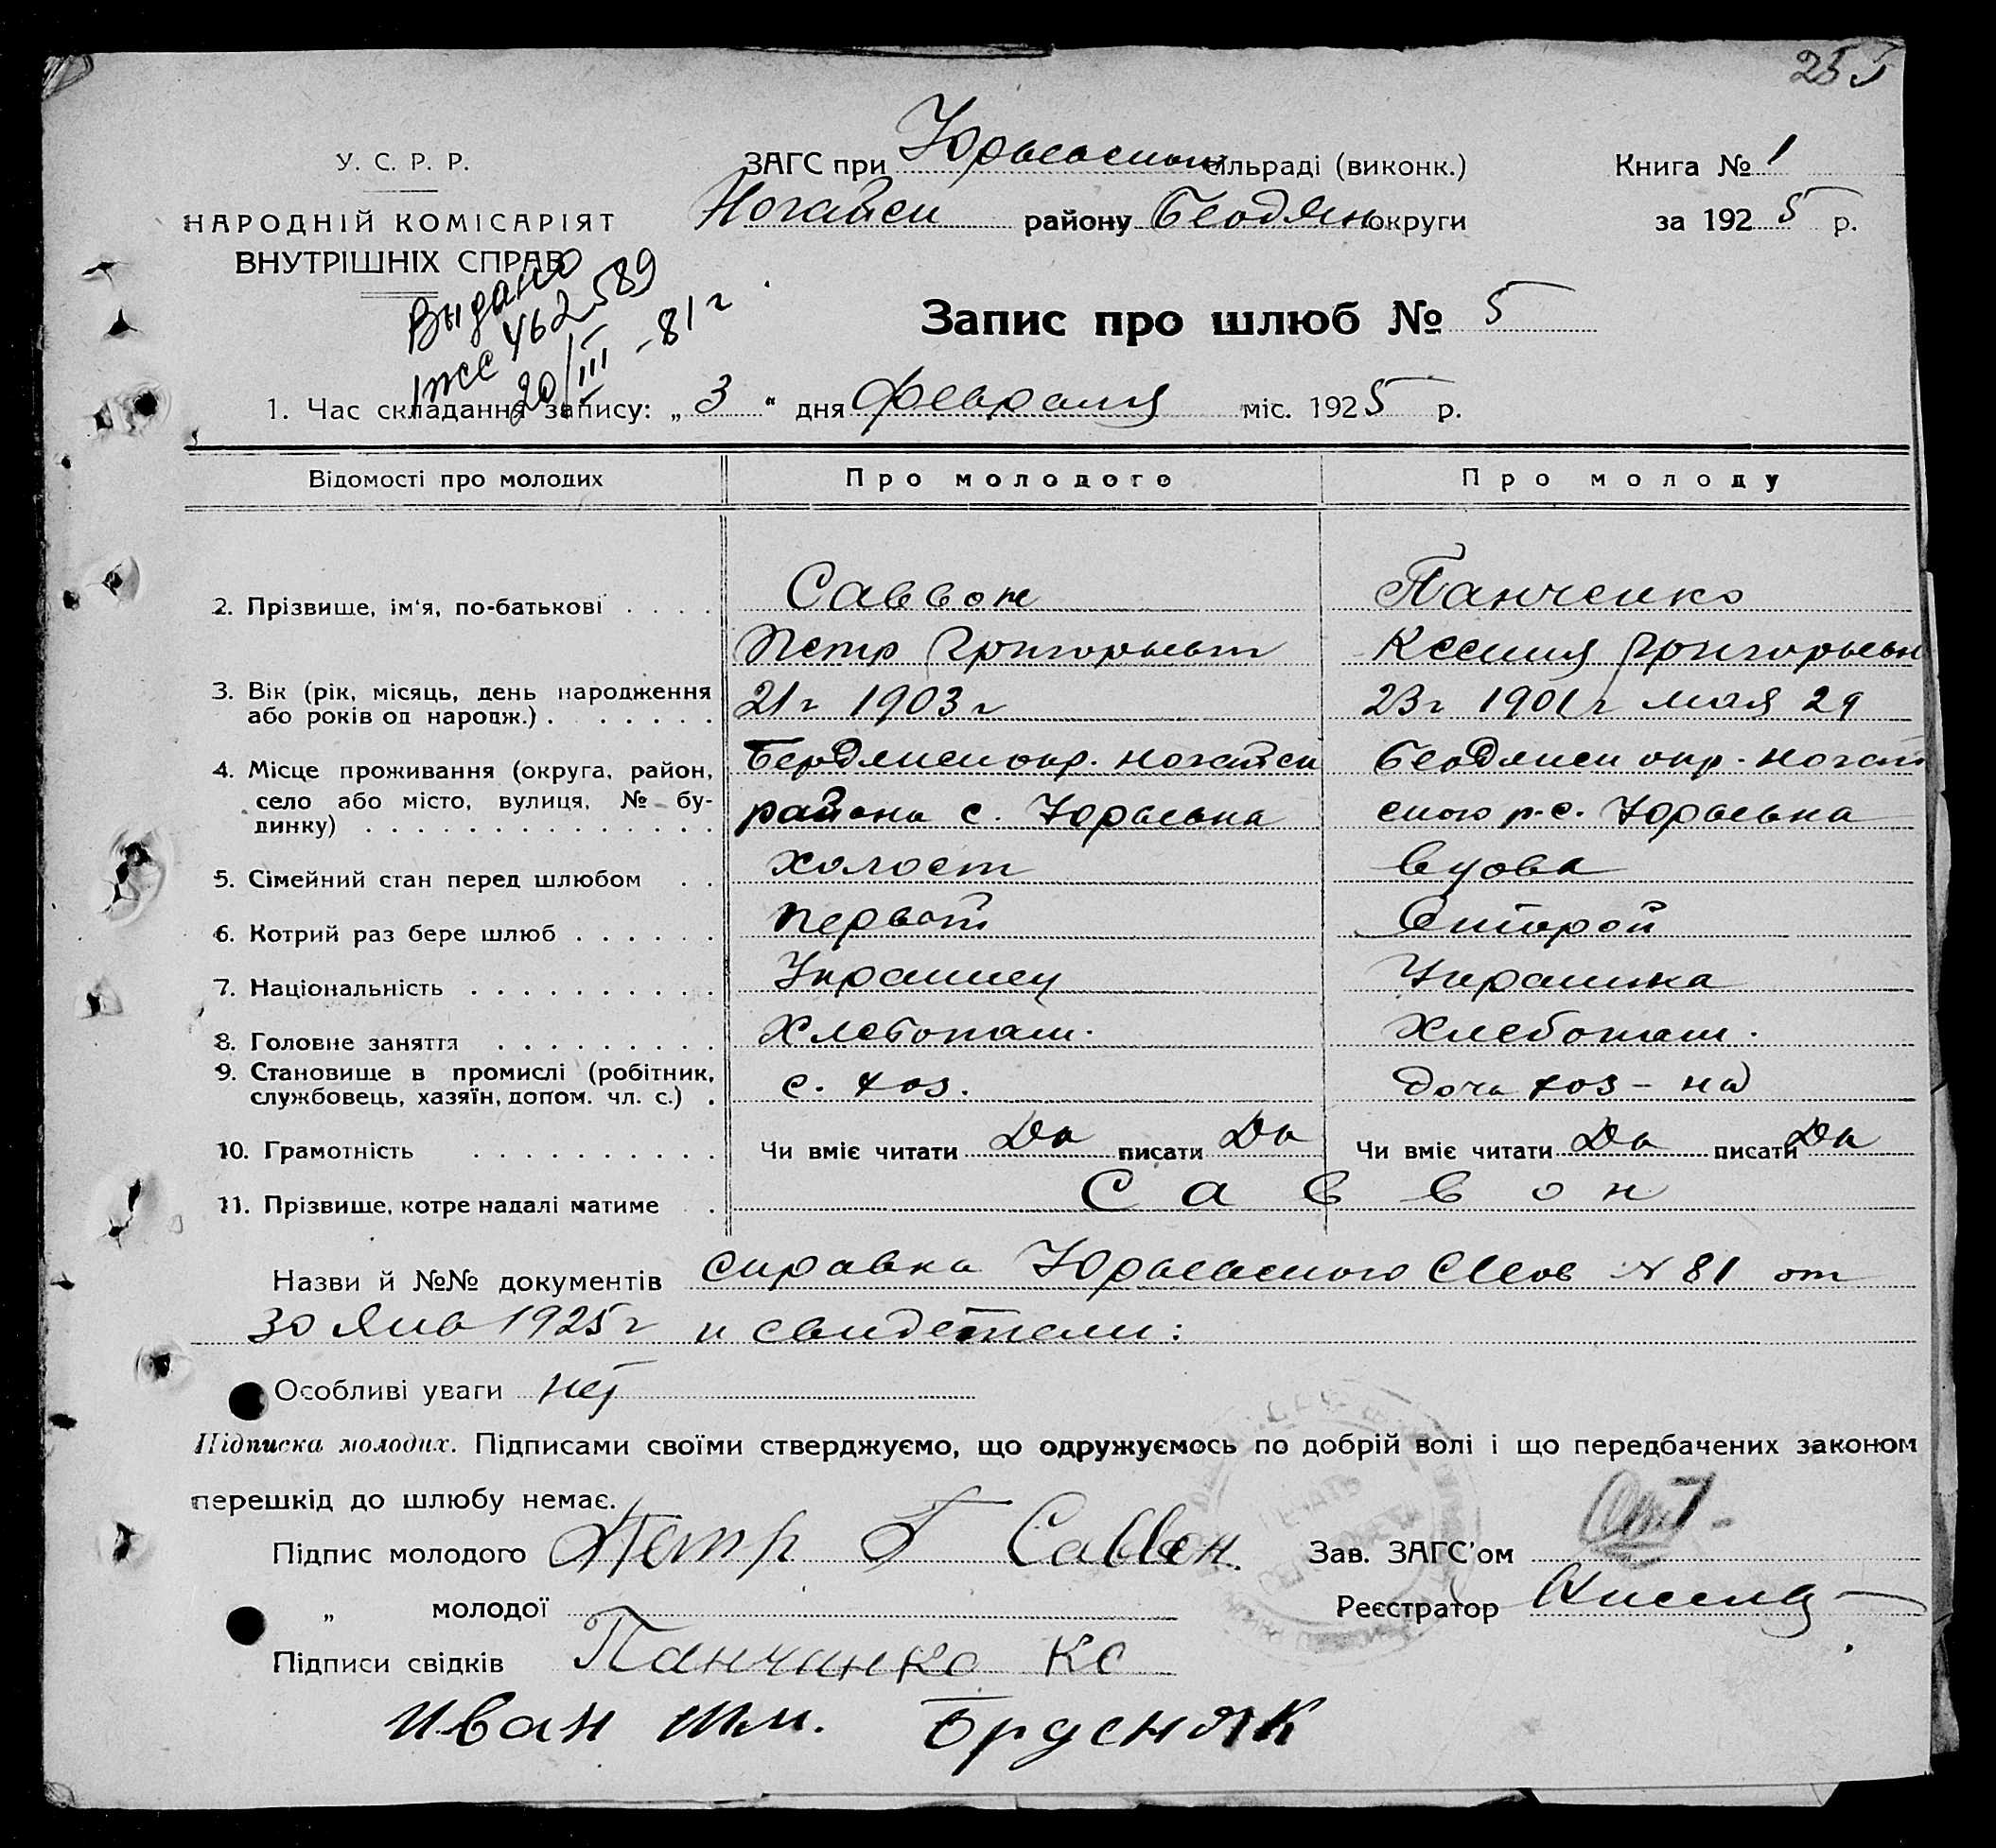 255
У. С. Р. Р.
НАРОДНІЙ КОМІСАРІЯТ
ВНУТРІШНІХ СПРАВ
ЗАГС при Юрьевском сільраді (виконк.)
Ногайск району Бердян округи
Книга № 1
за 1925 р.
Выдано
462589
20/III -81 г
Запис про шлюб № 5
1. Час складання запису: „ 3 “ дня февраля міс. 1925 р.
Відомості про молодих Про молодого Про молоду
2. Прізвище, ім'я, по-батькові . . . . Саввон Панченко
Петр Григорьевич Ксения Григорьевн
3. Вік (рік, місяць, день народження або років од народж.) . . . . . . . 21 г 1903 г 23 г 1901 г мая 29
4. Місце проживання (округа, район, село або місто, вулиця, № будинку) . . . Бердянск окр. Ногайск Бердянск окр. Ногай
района с. Юрьевка ского р. с. Юрьевка
5. Сімейний стан перед шлюбом . . холост вдова
6. Котрий раз бере шлюб . . . . . . первый второй
7. Національність . . . . . . . . . . Украинец Украинка
8. Головне заняття . . . . . . . . . Хлебопаш. Хлебопаш.
9. Становище в промислі (робітник, службовець, хазяїн, допом. чл. с.) . с. хоз. дочь хоз-на
10. Грамотність . . . . . . . . . . Чи вміє читати Да писати Да Чи вміє читати Да писати Да
11. Прізвище, котре надалі матиме . Саввон
Назви й №№ документів справка Юрьевского С/сов № 81 от
30 Янв 1925 г и свидетели:
Особливі уваги нет
Підписка молодих. Підписами своїми стверджуємо, що одружуємось по добрій волі і що передбачених законом
перешкід до шлюбу немає.
Підпис молодого Петр Г Саввон. Зав. ЗАГС'ом
„ молодої Реєстратор
Підписи свідків Панчинко Кс
Иван